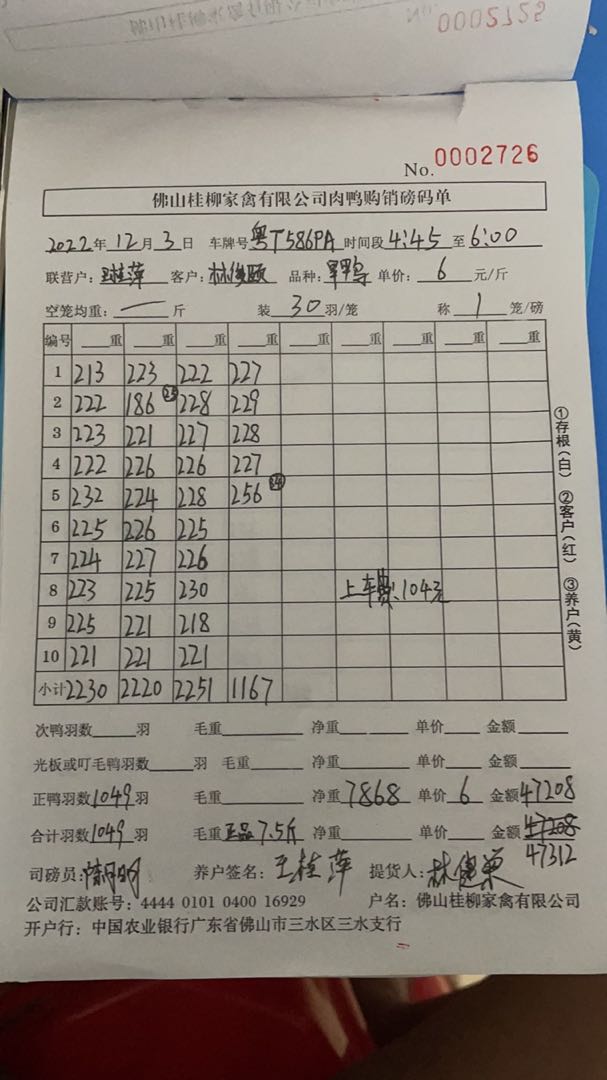 0002725
No. 0002726
佛山桂柳家禽有限公司肉鸭购销磅码单
2022年12月3日 车牌号粤T586PA时间段4:45至6:00
联营户:王桂萍 客户:林俊 品种: 单价:6元/斤
空笼均重:一斤 装30羽/笼 称1笼/磅
编号 重 重 重 重 重 重 重 重 重
1 213 223 222 227
2 222 186 25 228 229
3 223 221 227 228
4 222 226 226 227
5 232 224 228 256 34
6 225 226 225
7 224 227 226
8 223 225 230 上车费:104元
9 225 221 218
10 221 221 221
小计 2230 2220 2251 1167
①存根(白) ②客户(红) ③养户(黄)
次鸭羽数 羽 毛重 净重 单价 金额
光板或叮毛鸭羽数 羽 毛重 净重 单价 金额
正鸭羽数1049羽 毛重 净重7868 单价6 金额47208
合计羽数1049羽 毛重正品7.5斤 净重 单价 金额47208
47312
司磅员: 养户签名:王桂萍 提货人:林
公司汇款账号:4444 0101 0400 16929 户名:佛山桂柳家禽有限公司
开户行:中国农业银行广东省佛山市三水区三水支行